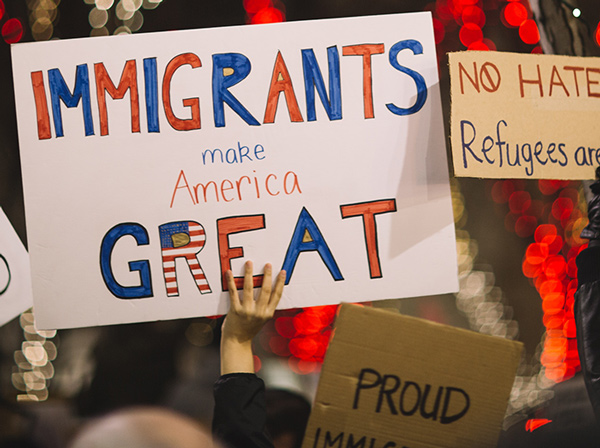 IMMIGRANTS
make
America
GREAT
NO HATE
Refugees are
PROUD